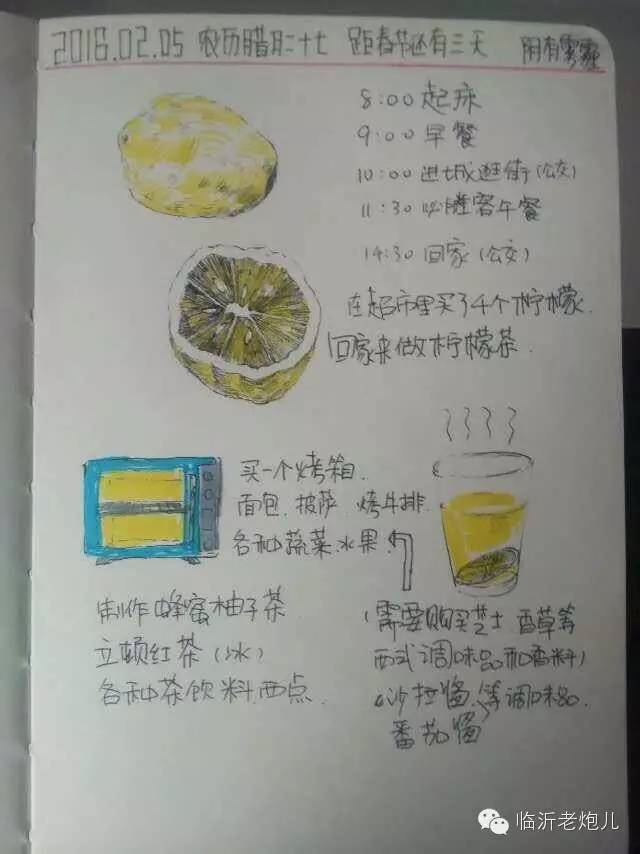 2016.02.05 农历腊月二十七 距春节还有三天 阴有雾霾
8:00 起床
9:00 早餐
10:00 进城逛街(公交)
11:30 必胜客午餐
14:30 回家(公交)
在超市里买了4个柠檬.
回家来做柠檬茶.
买一个烤箱.
面包.披萨.烤牛排.
各种蔬菜.水果.
制作蜂蜜柚子茶
立顿红茶(冰)
各种茶饮料.西点.
(需要购买芝士.香草等
西式调味品和香料)
沙拉酱.等调味品.
番茄酱
临沂老炮儿